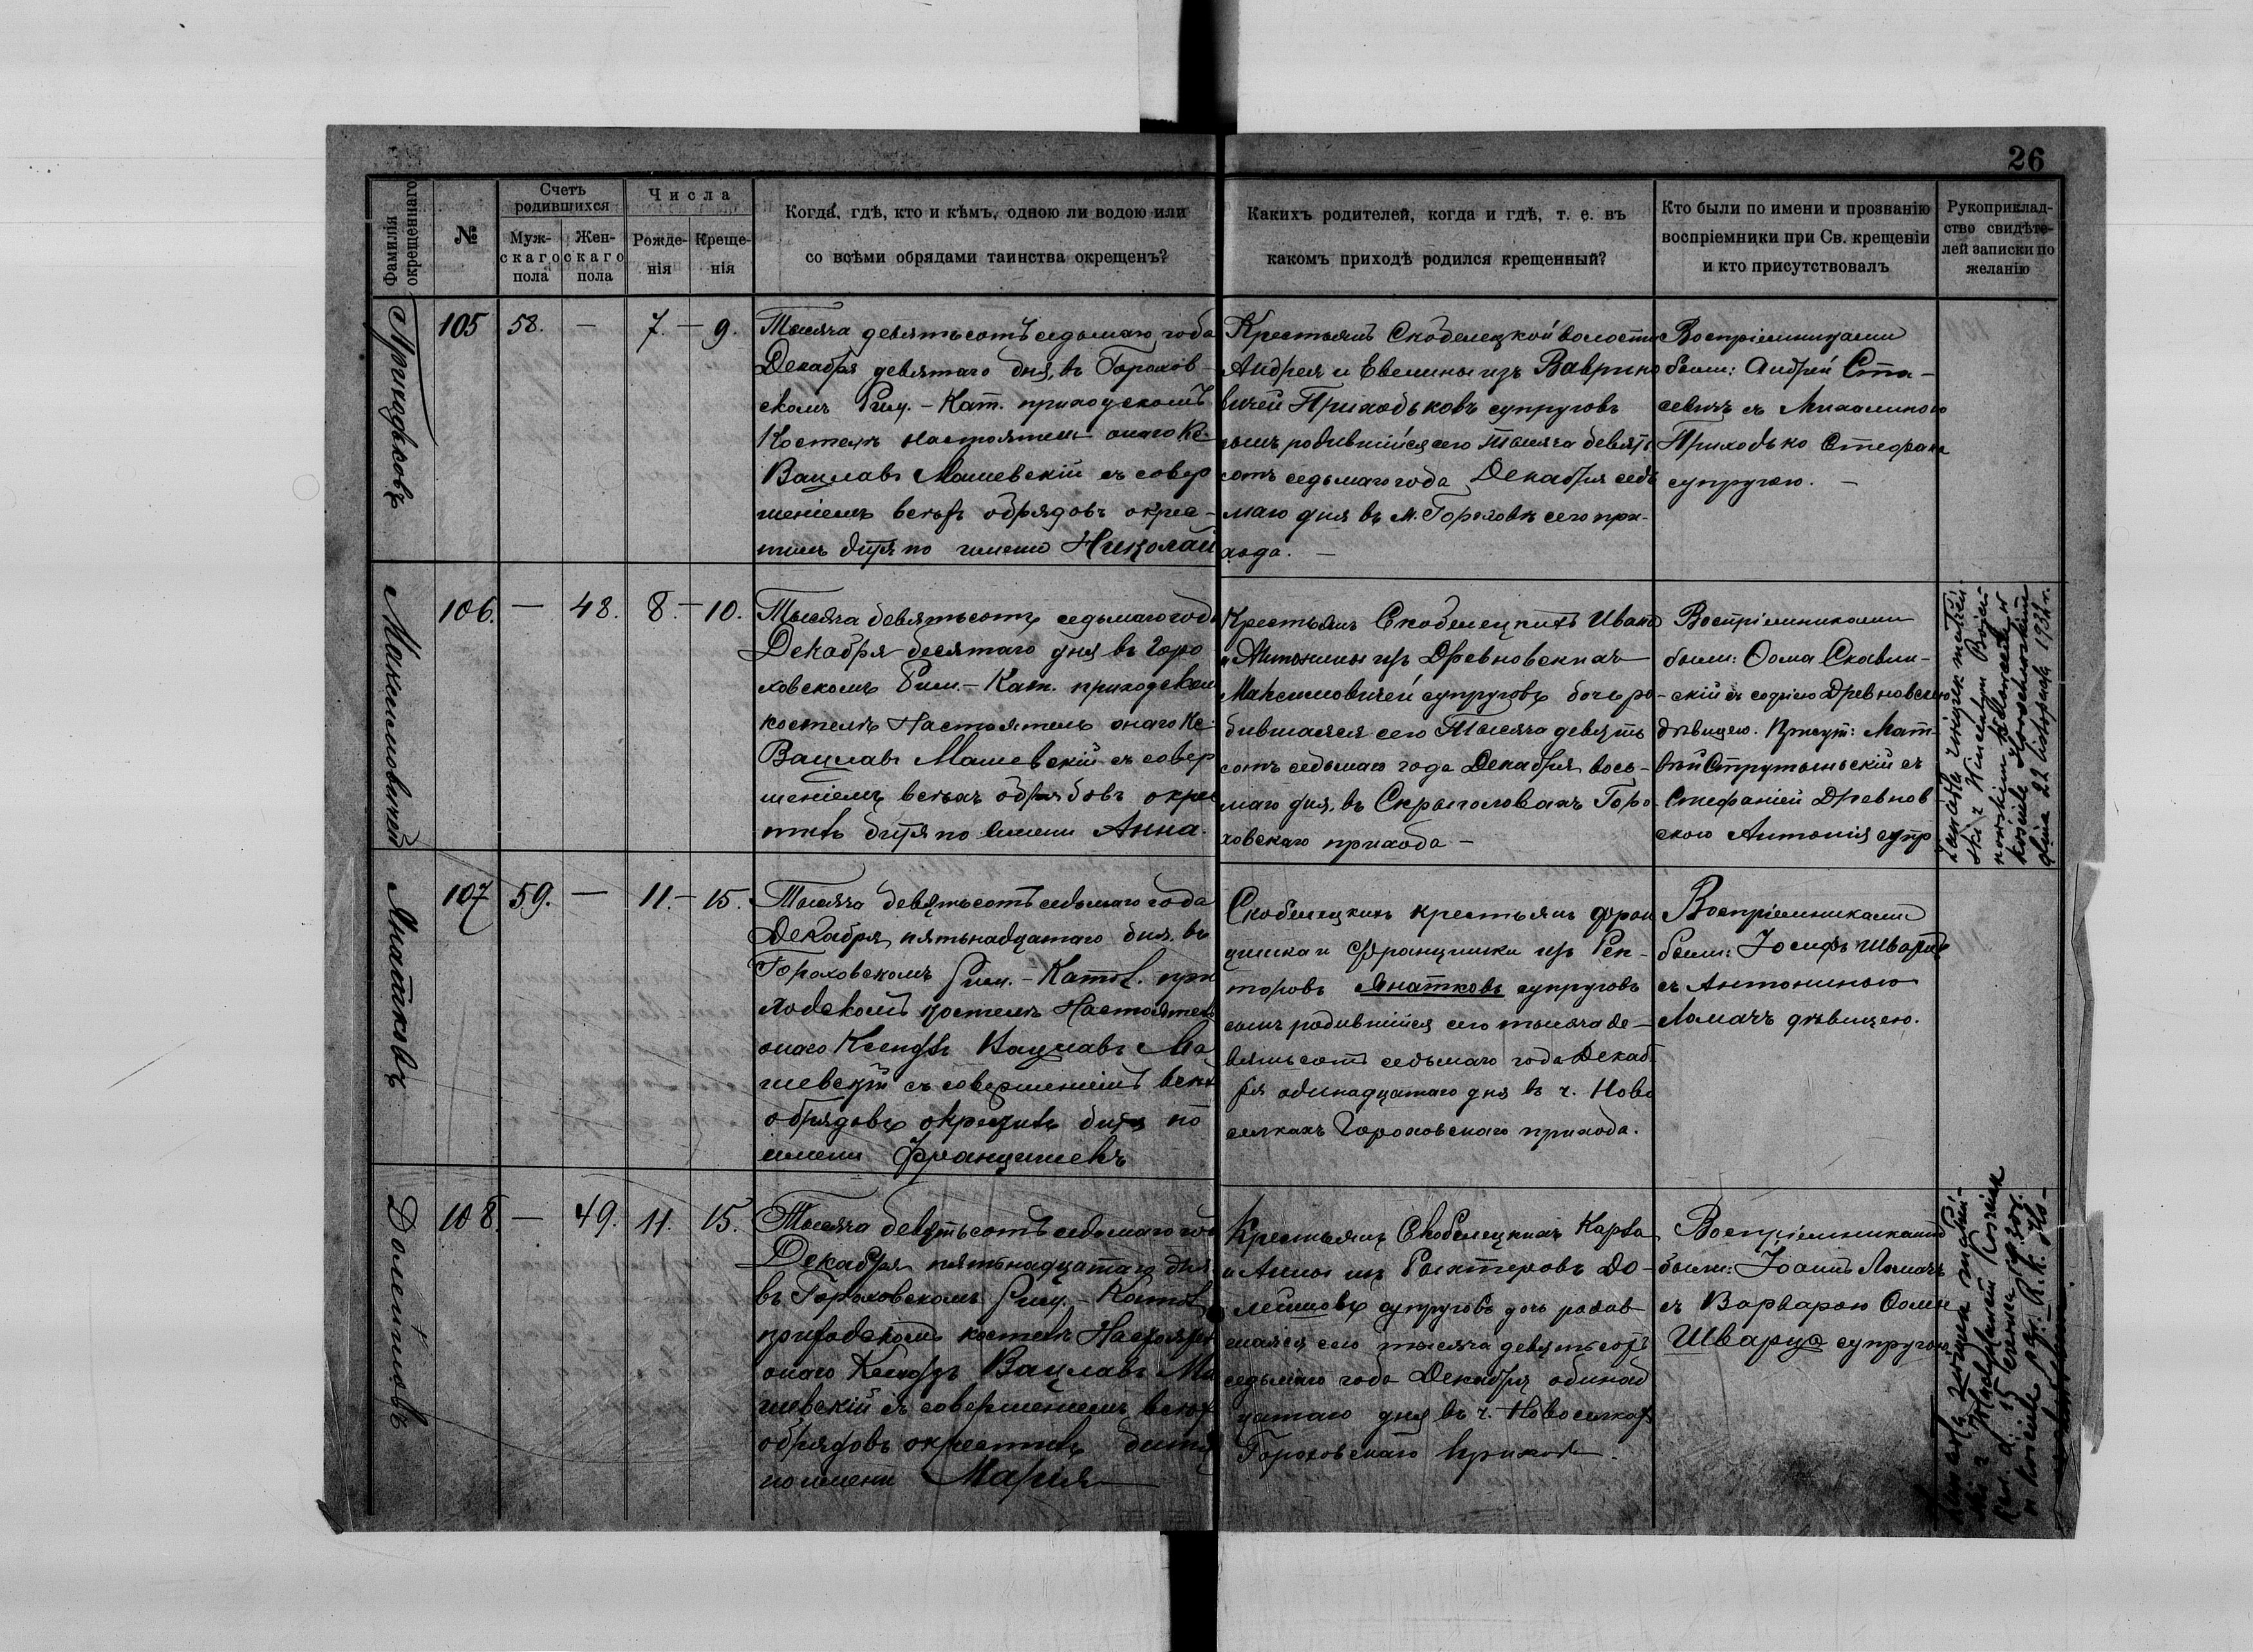 26
Фамилія окрещеннаго
№
Счетъ родившихся
Муж-скаго пола
Жен-скаго пола
Числа
Рожде-нія
Креще-нія
Когда, гдѣ, кто и кѣмъ, одною ли водою или
со всѣми обрядами таинства окрещенъ?
Какихъ родителей, когда и гдѣ, т. е. въ
какомъ приходѣ родился крещенный?
Кто были по имени и прозванію
воспріемники при Св. крещеніи
и кто присутствовалъ
Рукоприклад-
ство свидѣте-
лей записки по
желанію
Приходьковъ
105 58. — 7. — 9.
Тысяча девятьсотъ седьмаго года
Декабря девятаго дня, въ Горохов-
скомъ Рим.-Кат. приходскомъ
Костелѣ Настоятель онаго Кс.
Вацлавъ Машевскій съ совер
шеніемъ всѣхъ обрядовъ окрес-
тилъ дитя по имени Николай
Крестьянъ Скобелецкой волости
Андрея и Евелины изъ Ваврино
вичей Приходьковъ супруговъ
сынъ родившійся сего тысяча девять
сотъ седьмаго года Декабря седь
маго дня въ м. Гороховѣ сего при-
хода. —
Воспріемниками
были: Андрей Ста-
севичъ съ Михалиною
Приходько Стефана
супругою. —
Максимовичей
106. — 48. 8. — 10.
Тысяча девятьсотъ седьмаго года
Декабря десятаго дня въ Горо
ховскомъ Рим.-Кат. приходском
костелѣ Настоятель онаго Кс.
Вацлавъ Машевскій съ совер
шеніемъ всѣхъ обрядовъ окрес
тилъ дитя по имени Анна.
Крестьянъ Скобелецкихъ Ивана
и Антонины изъ Древновскихъ
Максимовичей супруговъ дочь ро-
дившаяся сего Тысяча девять
сотъ седьмаго года Декабря вось-
маго дня, въ Скрыголовахъ Горо
ховскаго прихода —
Воспріемниками
были: Ѳома Скавин-
скій съ Софіею Древновскою
дѣвицею. Присут: Мат-
вѣй Струтыньскій съ
Стефаніей Древнов-
ского Антонія супр
Zawarła związek małżeń-
ski z Wincentym
w
kościele Horochowskim
dnia 22 listopada 1931 r.
Янатковъ
107 59. — 11. — 15.
Тысяча девятьсотъ седьмаго года
Декабря пятьнадцатаго дня, въ
Гороховскомъ Рим.-Катол. при
ходскомъ костелѣ Настоятель
онаго Ксендзъ Вацлавъ Ма
шевскій съ совершеніемъ всѣхъ
обрядовъ окрестилъ дитя по
имени Францишекъ
Скобелецкихъ крестьянъ Фран
цишка и Францишки изъ Рен-
торовъ Янатковъ супруговъ
сынъ родившійся сего тысяча де-
вятьсотъ седьмаго года Декаб
ря одинадцатаго дня въ ч. Ново
селкахъ Гороховскаго прихода.
Воспріемниками
были: Іосифъ Шварцъ
съ Антониною
Ламачъ дѣвицею.
108. — 49. 11. 15.
Тысяча девятьсотъ седьмаго го
Декабря пятьнадцатаго дня
въ Гороховскомъ Рим.-Катол
приходскомъ костелѣ Настоятел
онаго Ксендзъ Вацлавъ Ма
шевскій съ совершеніемъ всѣхъ
обрядовъ окрестилъ дитя
по имени Марія
Крестьянъ Скобелецкихъ Карла
и Анны изъ Рыхтеровъ До-
супруговъ дочь родив
шаяся сего тысяча девятьсотъ
седьмаго года Декабря одинад
цатаго дня въ ч. Новоселкахъ
Гороховскаго прихода.
Воспріемниками
были: Іоаннъ Ламачъ
съ Варварою Ѳомы
Шварца супругою
związek małżeń-
ski z
w kościele